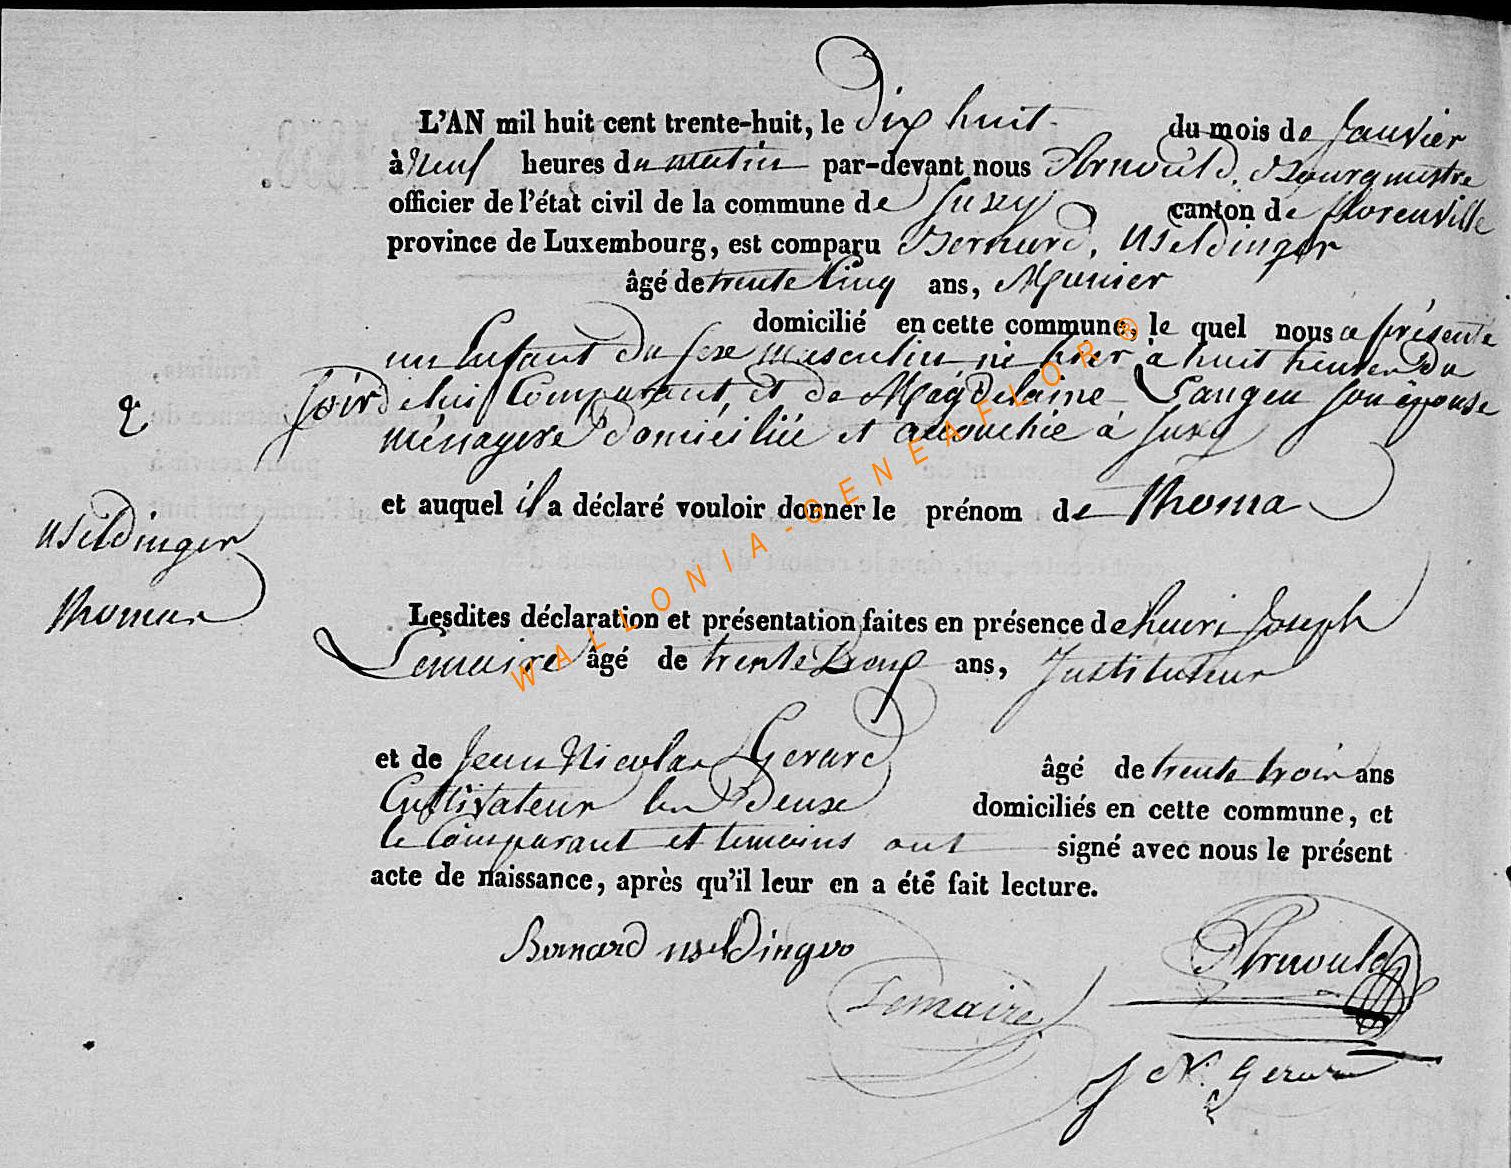 L'AN mil huit cent trente-huit, le dix huit du mois de Janvier
à neuf heures du matin par-devant nous Arnould, Bourgmestre
officier de l'état civil de la commune de Suxy canton de florenville
province de Luxembourg, est comparu Bernard, Useldinger
âgé de trente Cinq ans, Meunier
domicilié en cette commune, le quel nous a présenté
un Enfant du sexe masculin né hier à huit heures du
soir de lui Comparant, et de Magdelaine Sangen son épouse
ménagere domiciliée et accouchée à Suxy
et auquel il a déclaré vouloir donner le prénom de Thoma
2
Useldinger
Thomas
Lesdites déclaration et présentation faites en présence de henri Joseph
Lemaire âgé de trente Deux ans, Instituteur
et de Jean Nicolas Gerard âgé de trente trois ans
Cultivateur les Deux domiciliés en cette commune, et
le Comparant et temoins ont signé avec nous le présent
acte de naissance, après qu'il leur en a été fait lecture.
Bernard useldinger
Arnould
Lemaire
J N. Gerard
WALLONIA-GENEAFLOR®